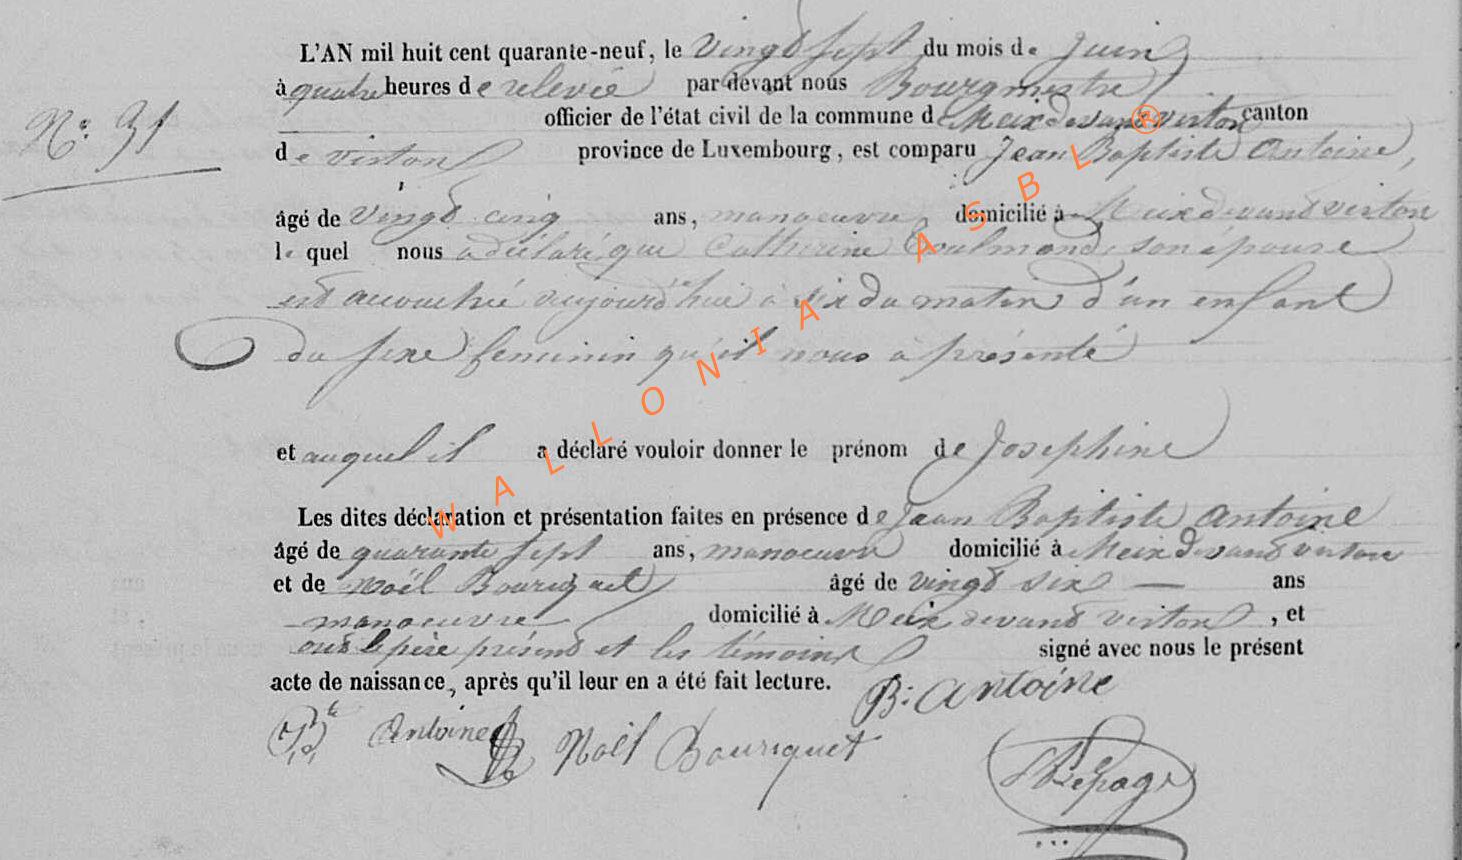 L'AN mil huit cent quarante-neuf, le vingt sept du mois de Juin
à quatre heures de relevée par devant nous Bourgmestre
N.° 31 officier de l'état civil de la commune de Meix devant virton canton
de virton province de Luxembourg, est comparu Jean Baptiste Antoine,
âgé de vingt cinq ans, manoeuvre domicilié à Meix devant virton
le quel nous a déclaré que Catherine Goulmand, son épouse
est accouchée aujourd'hui à six du matin d'un enfant
du sexe feminin qu'il nous a présenté
et auquel il a déclaré vouloir donner le prénom de Josephine
Les dites déclaration et présentation faites en présence de Jean Baptiste Antoine
âgé de quarante sept ans, manoeuvre domicilié à Meix devant virton
et de Noël Bouriquet âgé de vingt six — ans
manoeuvre domicilié à Meix devant virton, et
ont le père présent et les témoins signé avec nous le présent
acte de naissance, après qu'il leur en a été fait lecture. B: Antoine
Antoine Noël Bouriquet Lepage
WALLONIA ASBL ®